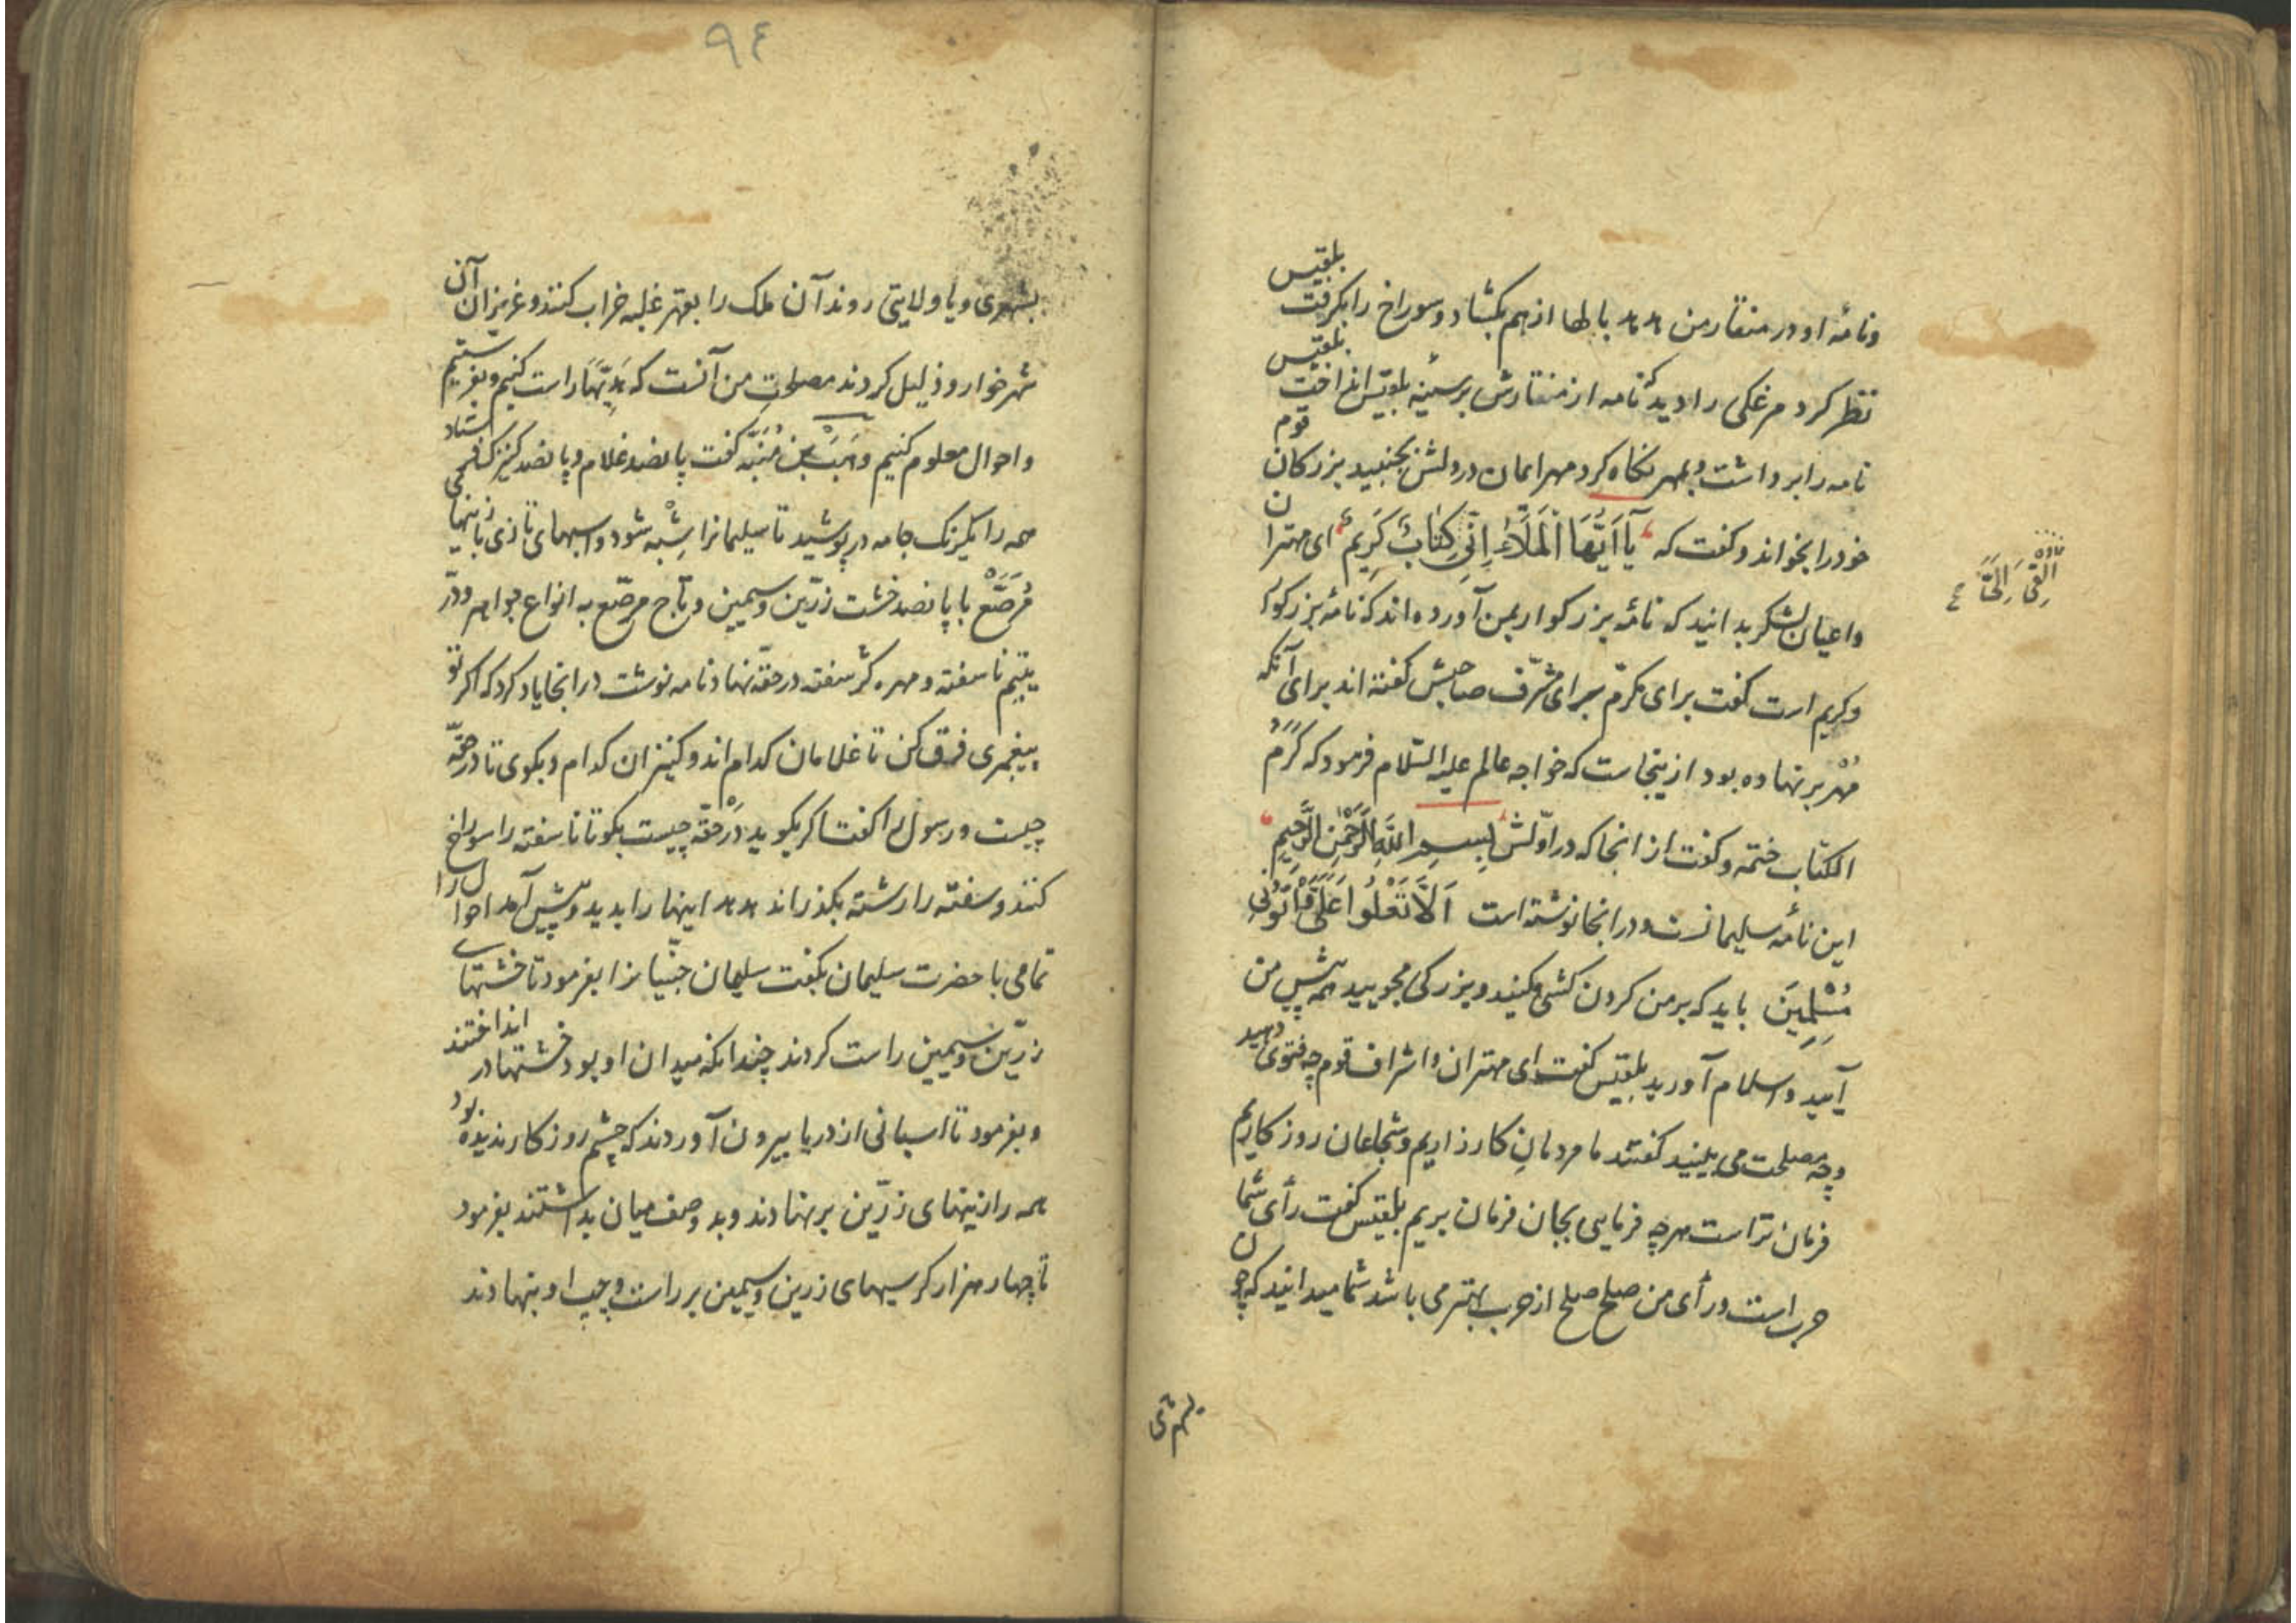 ونامهٔ او در منقار من هدهد بالها از هم بکشاد و سوراخ را بگرفت بلقیس
نظر کرد مرغکی را دید که نامه از منقارش بر سینهٔ بلقیس انداخت بلقیس
نامه را برداشت و بمهر نکاه کرد مهر ایمان در دلش بجنبید بزرکان قوم
خود را بخواند و کفت که یَا اَیُّهَا الْمَلَأُ اِنِّی اُلْقِیَ اِلَیَّ کِتَابٌ کَرِیمٌ ای مهتران
واعیان لشکر بدانید که نامهٔ بزرکوار بمن آورده اند که نامهٔ بزرکوار
وکریم است کفت برای مکرّم برای مشرّف صاحبش کفته اند برای آنکه
مُهْر بر نهاده بود از ینجاست که خواجه عالم علیه السّلام فرمود که کَرَمُ
الکتاب ختمه و کفت از انجا که در اوّلش بِسْمِ اللّٰهِ الرَّحْمٰنِ الرَّحِیمِ
این نامهٔ سلیمانست و در انجا نوشته است اَلَّا تَعْلُوا عَلَیَّ وَأْتُونِی
مُسْلِمِینَ باید که بر من کردن کشی مکنید و بزرکی مجویید همه پیش من
آیید و اسلام آورید بلقیس کفت ای مهتران و اشراف قوم چه فتوی دهید
وچه مصلحت می بینید کفتند ما مردمان کارزاریم و شجاعان روز کاریم
فرمان تراست هرچه فرمایی بجان فرمان بریم بلقیس کفت رأی شما
حرب است و رأی من صلح صلح از حرب بهتر می باشد شما میدانید که چون
بشهری
بشهری و یا ولایتی روند آن ملک را بقهر غلبه خراب کنند و عزیزان آن
شهر خوار و ذلیل کردند مصلحت من آنست که هَدِیّهَا راست کنیم و بفرستیم
واحوال معلوم کنیم وَهَبْ بن مُنَبِّه کفت پانصد غلام و پانصد کنیزک فرستاد
همه را یکرنک جامه در پوشید تا سلیمانرا شبه شود و اسبهای تازی با زینها
مُرَصَّعْ با پانصد خشت زرّین و سیمین و تاج مرصّع به انواع جواهر ودرّ
یتیم ناسفته و مهره کژ سفته در حقّه نهاد و نامه نوشت درانجا یاد کرد که اکر تو
پیغمبری فرق کن تا غلامان کدام اند و کنیزان کدام و بکوی تا در حقّه
چیست و رسول را کفت اکر بکوید در حقّه چیست بکو تا ناسفته را سوراخ
کنند و سفته را رشته بکذراند هدهد اینها را بدید و پیش آمد احوال را
تمامی با حضرت سلیمان بکفت سلیمان جنّیانرا بفرمود تا خشتهای
زرّین و سیمین راست کردند چندانکه میدان او بود خشتها در انداختند
و بفرمود تا اسبانی از دریا بیرون آوردند که چشم روزکار ندیده بود
همه را زینهای زرّین بر نهادند و بدو صف میان بداشتند بفرمود
تا چهار هزار کرسیهای زرین و سیمین بر راست و چپ او بنهادند
اُلْقِیَ اِلَیَّ
۹۴